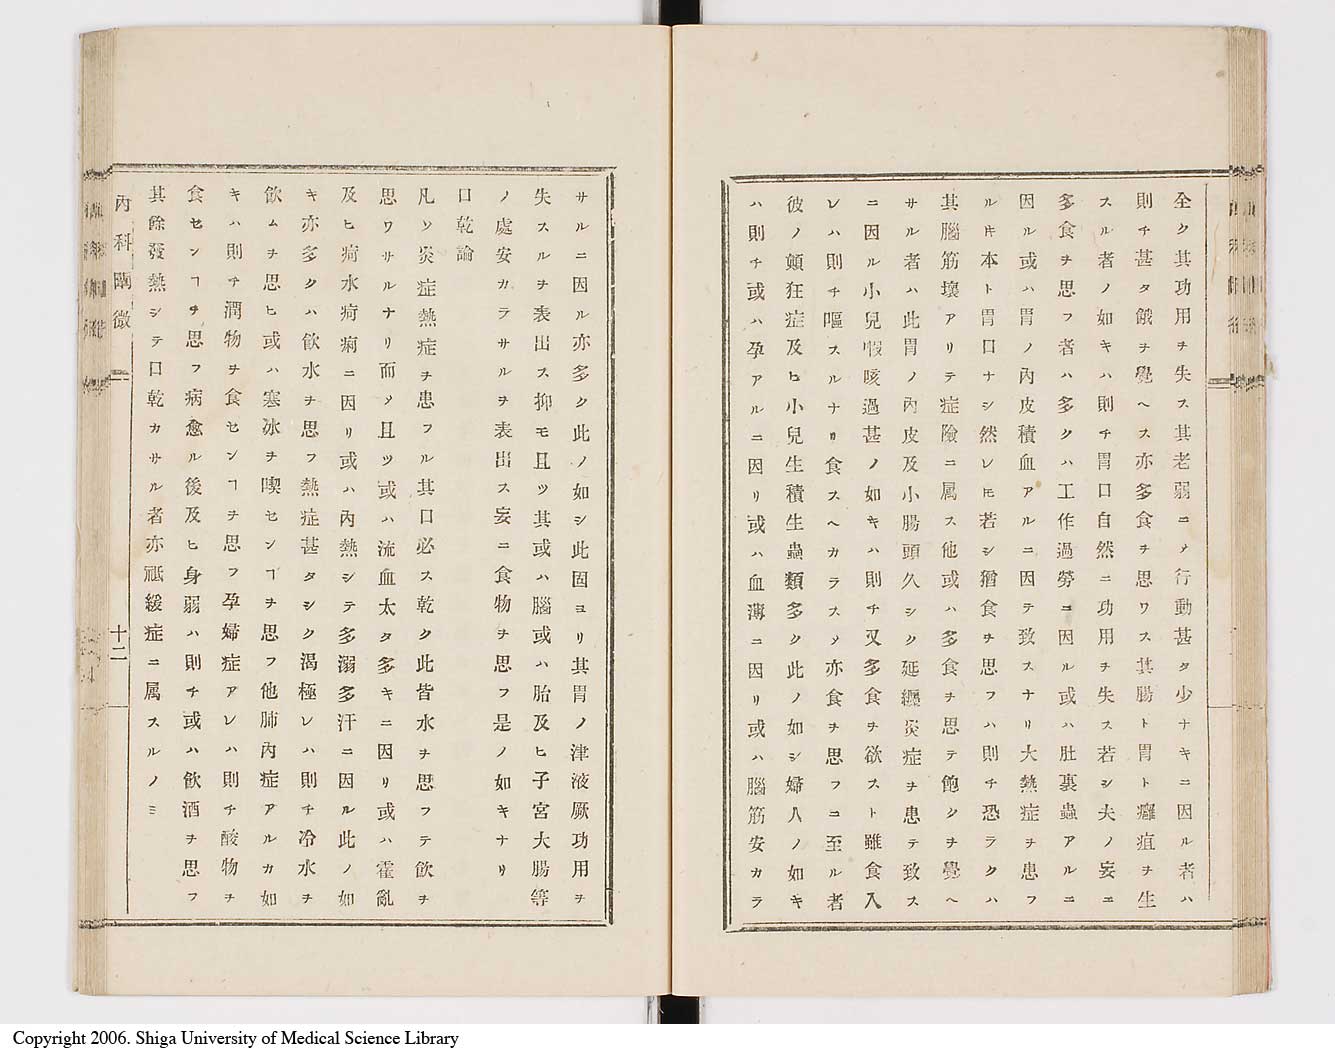 全ク其功用ヲ失ス其老弱ニメ行動甚タ少ナキニ因ル者ハ
則チ甚タ餓ヲ覺ヘス亦多食ヲ思ワス其腸ト胃ト癰疽ヲ生
スル者ノ如キハ則チ胃口自然ニ功用ヲ失ス若シ夫ノ妄ニ
多食ヲ思フ者ハ多クハ工作過勞ニ因ル或ハ肚裏蟲アルニ
因ル或ハ胃ノ內皮積血アルニ因テ致スナリ大熱症ヲ患フ
ルㇳキ本ト胃口ナシ然レㇳモ若シ猶食ヲ思フハ則チ恐ラクハ
其腦筋壞アリテ症險ニ属ス他或ハ多食ヲ思テ飽クヲ覺ヘ
サル者ハ此胃ノ內皮及小腸頭久シク延纒炎症ヲ患テ致ス
ニ因ル小兒嘏咳過甚ノ如キハ則チ又多食ヲ欲スト雖食入
レハ則チ嘔スルナリ食スヘカラスメ亦食ヲ思フニ至ル者
彼ノ顛狂症及ヒ小兒生積生蟲類多ク此ノ如シ婦人ノ如キ
ハ則チ或ハ孕アルニ因リ或ハ血薄ニ因リ或ハ腦筋安カラ
サルニ因ル亦多ク此ノ如シ此固ヨリ其胃ノ津液厥功用ヲ
失スルヲ表出ス抑モ且ツ其或ハ腦或ハ胎及ヒ子宮大腸等
ノ處安カラサルヲ表出ス妄ニ食物ヲ思フ是ノ如キナリ
口乾論
凡ソ炎症熱症ヲ患フル其口必ス乾ク此皆水ヲ思フテ飲ヲ
思ワサルナリ而メ且ツ或ハ流血太タ多キニ因リ或ハ霍亂
及ヒ痾水痾痢ニ因リ或ハ內熱シテ多溺多汗ニ因ル此ノ如
キ亦多クハ飲水ヲ思フ熱症甚タシク渴極レハ則チ冷水ヲ
飲ムヲ思ヒ或ハ寒冰ヲ喫センヿヲ思フ他肺內症アルカ如
キハ則チ潤物ヲ食センヿヲ思フ孕婦症アレハ則チ酸物ヲ
食センヿヲ思フ病愈ル後及ヒ身弱ハ則チ或ハ飲酒ヲ思フ
其餘發熱シテ口乾カサル者亦祗緩症ニ属スルノミ
內科闡微
十二
Copyright 2006. Shiga University of Medical Science Library